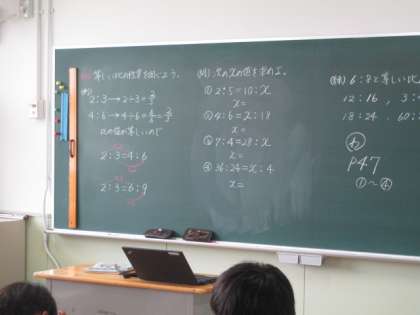 等しい比の性質を調べよう。
2:3→2÷3=2/3
4:6→4÷6=4/6=2/3
比の値が等しいので
2:3=4:6
2:3=6:9
(例) 次のxの値を求めよ。
① 2:5=10:x
x=
② 4:6=x:18
x=
③ 7:4=28:x
x=
④ 36:24=x:4
x=
6:8と等しい比
12:16, 3:4
18:24, 60:
P47
①〜④